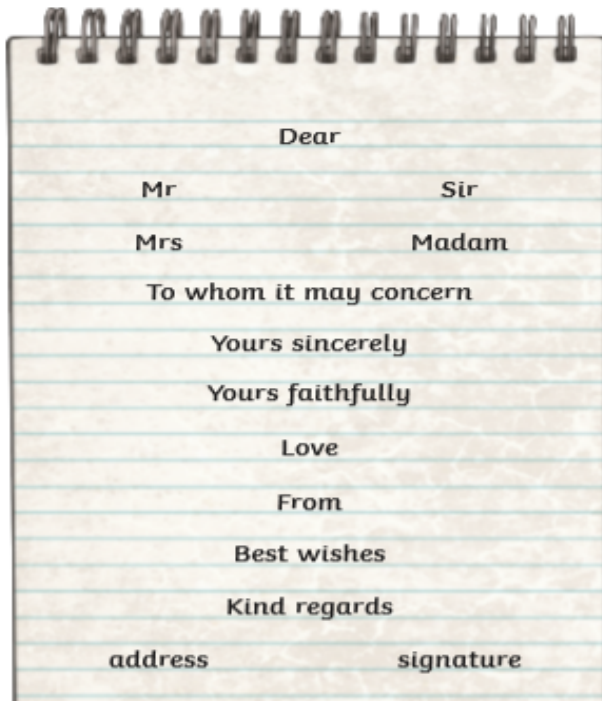 Dear
Mr Sir
Mrs Madam
To whom it may concern
Yours sincerely
Yours faithfully
Love
From
Best wishes
Kind regards
address signature